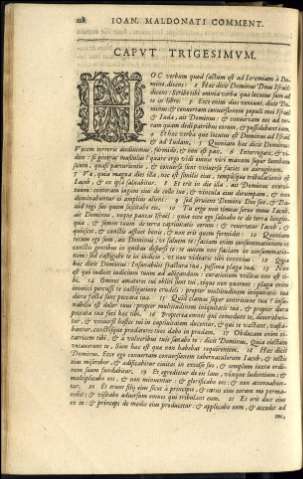 228 IOAN. MALDONATI COMMENT.
CAPVT TRIGESIMVM.
HOC verbum quod factum est ad Ieremiam à Do-
mino dicens: 2 Hæc dicit Dominus Deus Israël
dicens: Scribe tibi omnia verba quæ locutus sum ad
te in libro. 3 Ecce enim dies veniunt, dicit Do-
minus: & conuertam conuersionem populi mei Israël
& Iuda, ait Dominus: & conuertam eos ad ter-
ram quam dedi patribus eorum, & possidebunt eam.
4 Et hæc verba quæ locutus est Dominus ad Israël
& ad Iudam, 5 Quoniam hæc dicit Dominus:
Vocem terroris audiuimus: formido, & non est pax. 6 Interrogate, & vi-
dete si generat masculus? quare ergo vidi omnis viri manum super lumbum
suum, quasi parturientis, & conuersæ sunt vniuersæ facies in auruginem.
7 Væ, quia magna dies illa, nec est similis eius, tempúsque tribulationis est
Iacob, & ex ipsa saluabitur. 8 Et erit in die illa, ait Dominus exerci-
tuum: conteram iugum eius de collo tuo, & vincula eius dirumpam, & non
dominabuntur ei amplius alieni: 9 sed seruient Domino Deo suo, & Da-
uid regi suo quem suscitabo eis. 10 Tu ergo ne timeas serue meus Iacob,
ait Dominus, neque paueas Israël: quia ecce ego saluabo te de terra longin-
qua, & semen tuum de terra captiuitatis eorum: & reuertetur Iacob, &
quiescet, & cunctis affluet bonis, & non erit quem formidet: 11 Quoniam
tecum ego sum, ait Dominus, vt saluem te: faciam enim consummationem in
cunctis gentibus in quibus dispersi te: te autem non faciam in consummatio-
nem: sed castigabo te in iudicio, vt non videaris tibi innoxius. 12 Quia
hæc dicit Dominus: Insanabilis fractura tua, pessima plaga tua. 13 Non
est qui iudicet iudicium tuum ad alligandum: curationum vtilitas non est ti-
bi. 14 Omnes amatores tui obliti sunt tui, téque non quærent: plaga enim
inimici percussi te castigatione crudeli: propter multitudinem iniquitatis tuæ
dura facta sunt peccata tua. 15 Quid clamas super contritione tua? insa-
nabilis est dolor tuus: propter multitudinem iniquitatis tuæ, & propter dura
peccata tua feci hæc tibi. 16 Propterea omnes qui comedunt te, deuorabun-
tur, & vniuersi hostes tui in captiuitatem ducentur, & qui te vastant, vasta-
buntur, cunctósque prædatores tuos dabo in prædam. 17 Obducam enim ci-
catricem tibi, & à vulneribus tuis sanabo te: dicit Dominus, Quia eiectam
vocauerunt te, Sion: hæc est quæ non habebat requirentem. 18 Hæc dicit
Dominus: Ecce ego conuertam conuersionem tabernaculorum Iacob, & tectis
eius miserebor, & ædificabitur ciuitas in excelso suo, & templum iuxta ordi-
nem suum fundabitur. 19 Et egredietur de eis laus, vóxque ludentium: &
multiplicabo eos, & non minuentur: & glorificabo eos: & non attenuabun-
tur. 20 Et erunt filij eius sicut à principio, & cœtus eius coram me perma-
nebit: & visitabo aduersum omnes qui tribulant eum. 21 Et erit dux eius
ex eo: & princeps de medio eius producetur: & applicabo eum, & accedet ad
me,